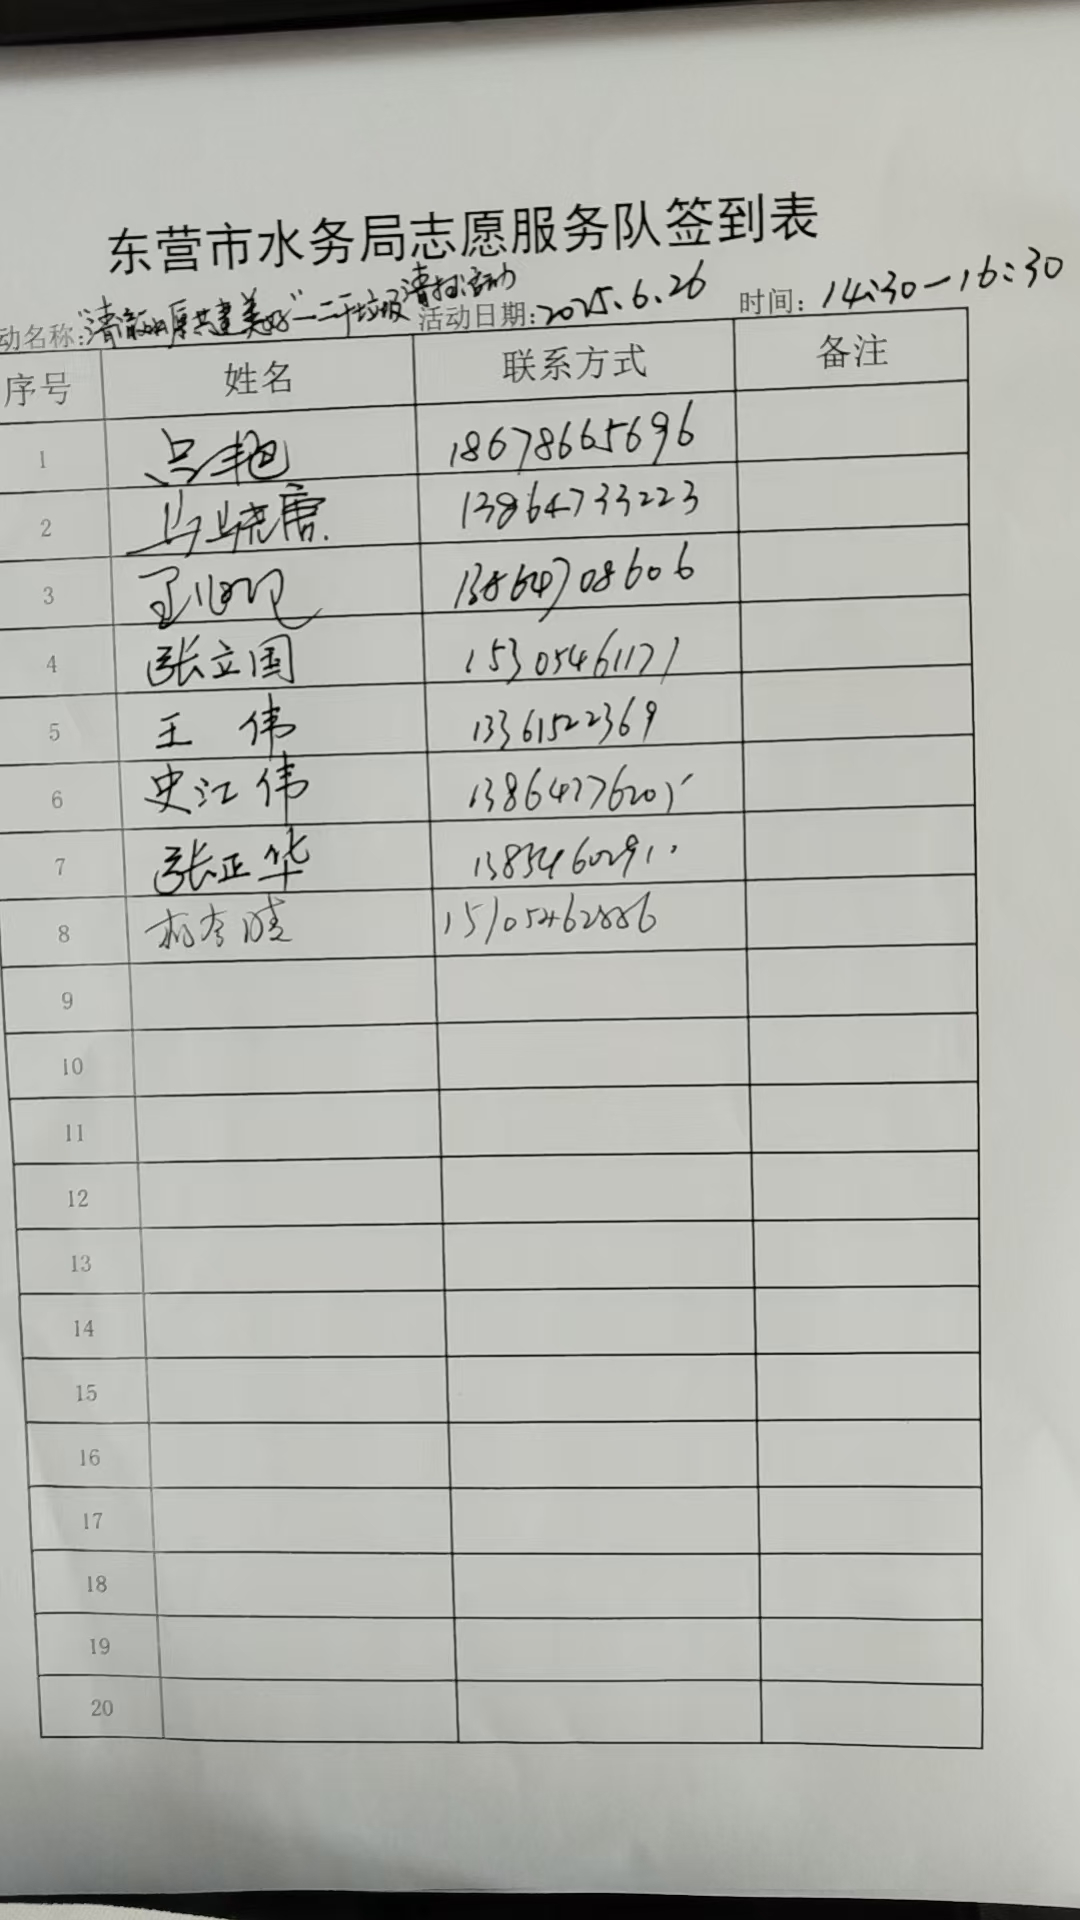 东营市水务局志愿服务队签到表
动名称: 共建美好 垃圾清扫活动 活动日期: 2025.6.26 时间: 14:30-16:30
序号 姓名 联系方式 备注
1 吕艳 18678665696
2 马晓唐 13864733223
3 13864708606
4 张立国 15305461171
5 王伟 13361522369
6 史江伟 13864776205
7 张正华 13854602991
8 15105462886
9
10
11
12
13
14
15
16
17
18
19
20